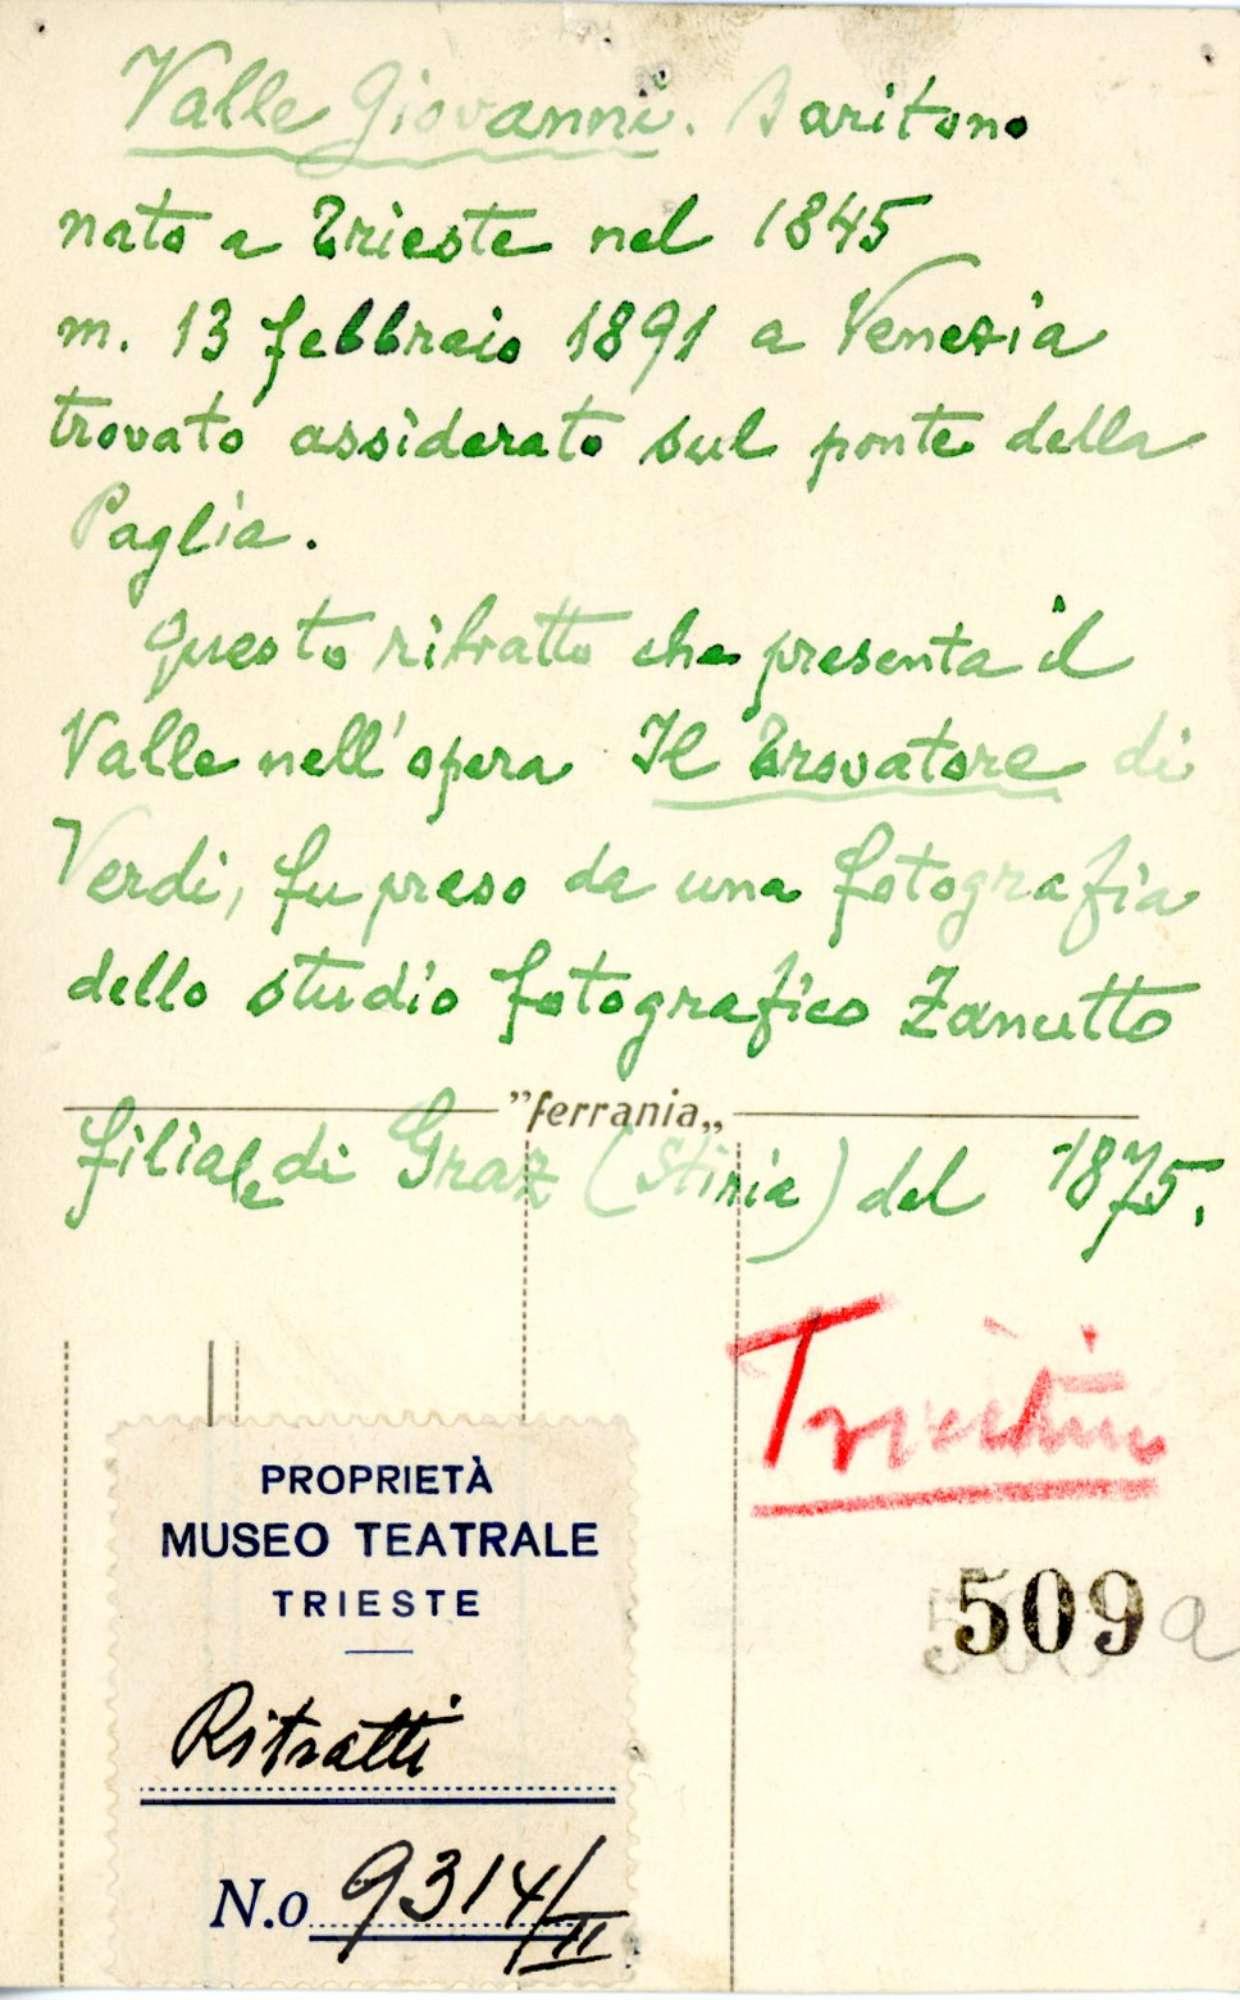 Valle Giovanni. Baritono
nato a Trieste nel 1845
m. 13 febbraio 1891 a Venezia
trovato assiderato sul ponte della
Paglia.
Questo ritratto che presenta il
Valle nell'opera Il Trovatore di
Verdi, fu preso da una fotografia
dello studio fotografico Zanutto
"ferrania„
filiale di Graz (Stiria) del 1875.
Triestini
PROPRIETÀ
MUSEO TEATRALE
TRIESTE
509 a
Ritratti
N.o 9314/II